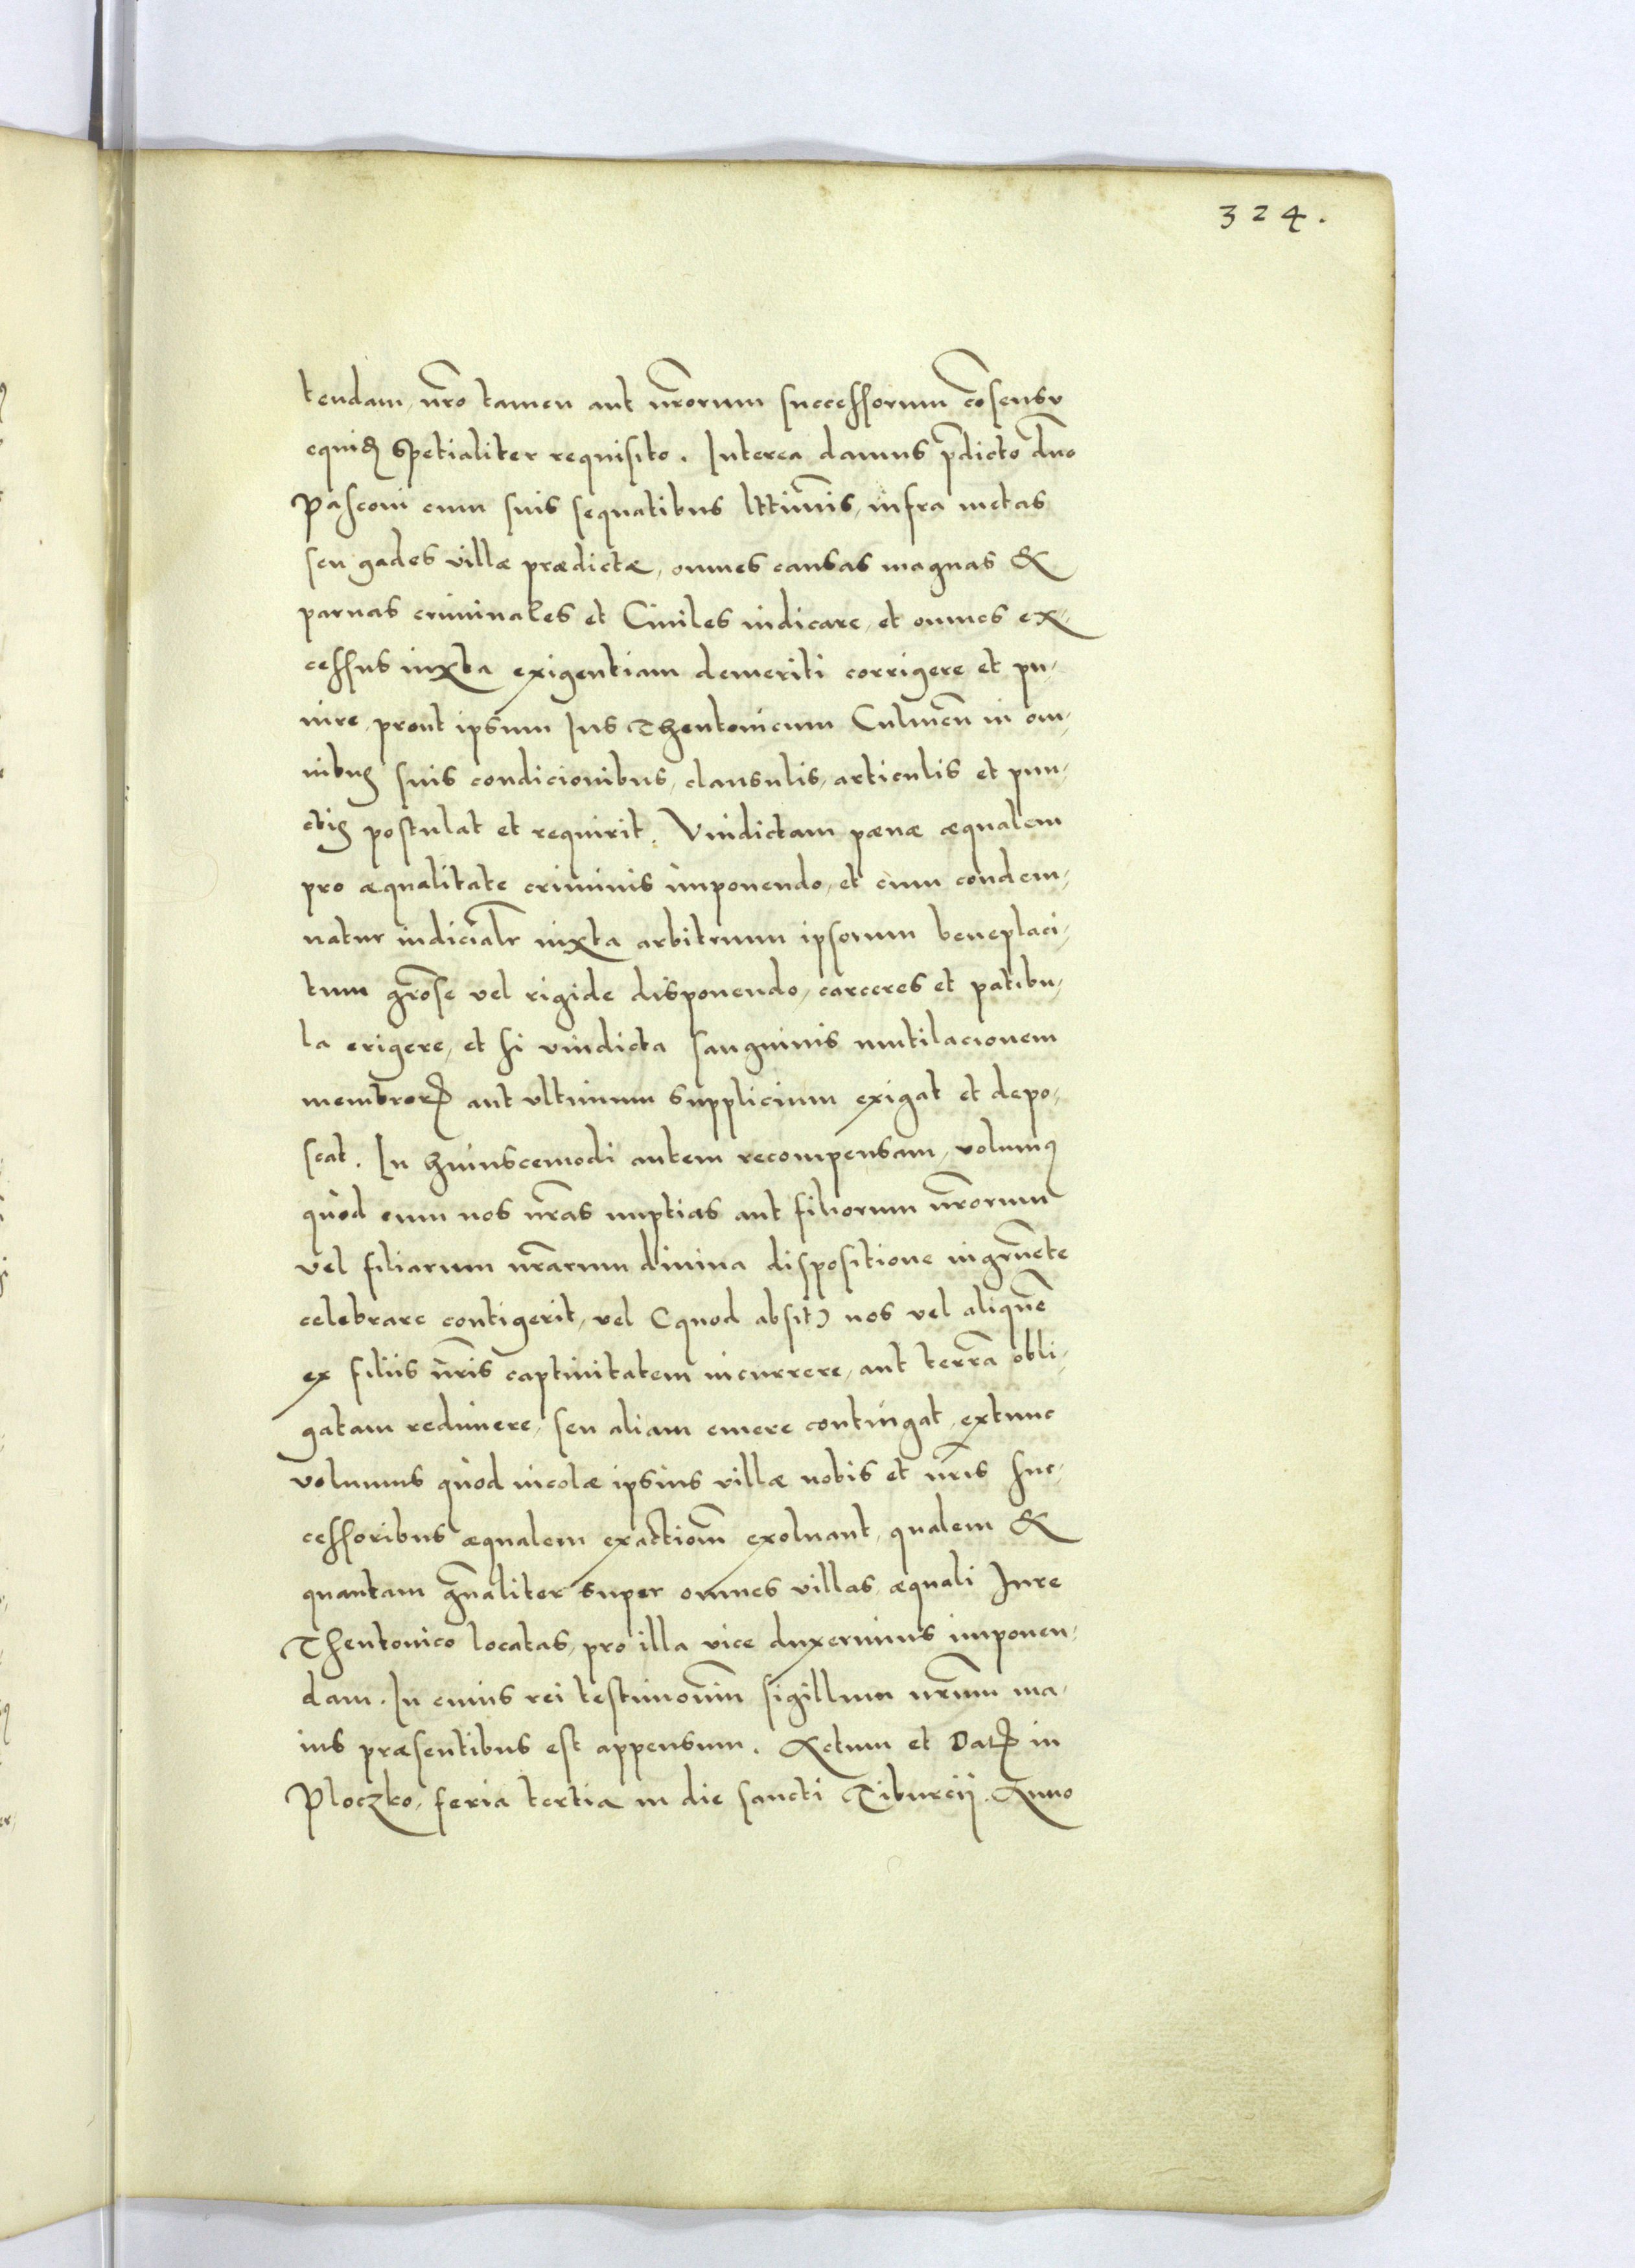 324.
tendam, nr̃o tamen aut nr̃orum successorum cõsensu
equidẽ spetialiter requisito. Interea damus p̃dicto dño
Pasconi cum suis sequatibus lttimis, infra metas
seu gades villæ prædictæ, omnes causas magnas &
paruas criminales et Ciuiles iudicare, et omnes ex,
cessus iuxta exigentiam demeriti corrigere et pu,
nire, prout ipsum Ius Theutonicum Culmeñ in om,
nibus suis condicionibus, clausulis, articulis et pun,
ctis postulat et requirit. Vindictam pænæ æqualem
pro æqualitate criminis imponendo, et cum condem,
natur iudicialr̃ iuxta arbitrium ipsorum beneplaci,
tum gr̃ose vel rigide disponendo, carceres et patibu,
la erigere, et si vindicta sanguinis mutilacionem
membrorꝝ aut vltimum supplicium exigat et depo,
scat. In huiuscemodi autem recompensam, volumꝰ
quòd cum nos nr̃as nuptias aut filiorum nr̃orum
vel filiarum nr̃arum diuina dispositione ingruẽte
celebrare contigerit, vel (quod absit) nos vel aliquẽ
ex filiis nr̃is captiuitatem incurrere, aut terrã obli,
gatam redimere, seu aliam emere contingat, extunc
volumus quòd incolæ ipsius villæ nobis et nr̃is suc,
cessoribus æqualem exactioñm exoluant, qualem &
quantam gñaliter super omnes villas æquali Iure
Theutonico locatas, pro illa vice duxerimus imponen,
dam. In cuius rei testimoniũ sigillum nr̃um ma,
ius præsentibus est appensum. Actum et Datꝝ in
Ploczko, feria tertia in die sancti Tiburcij. Anno